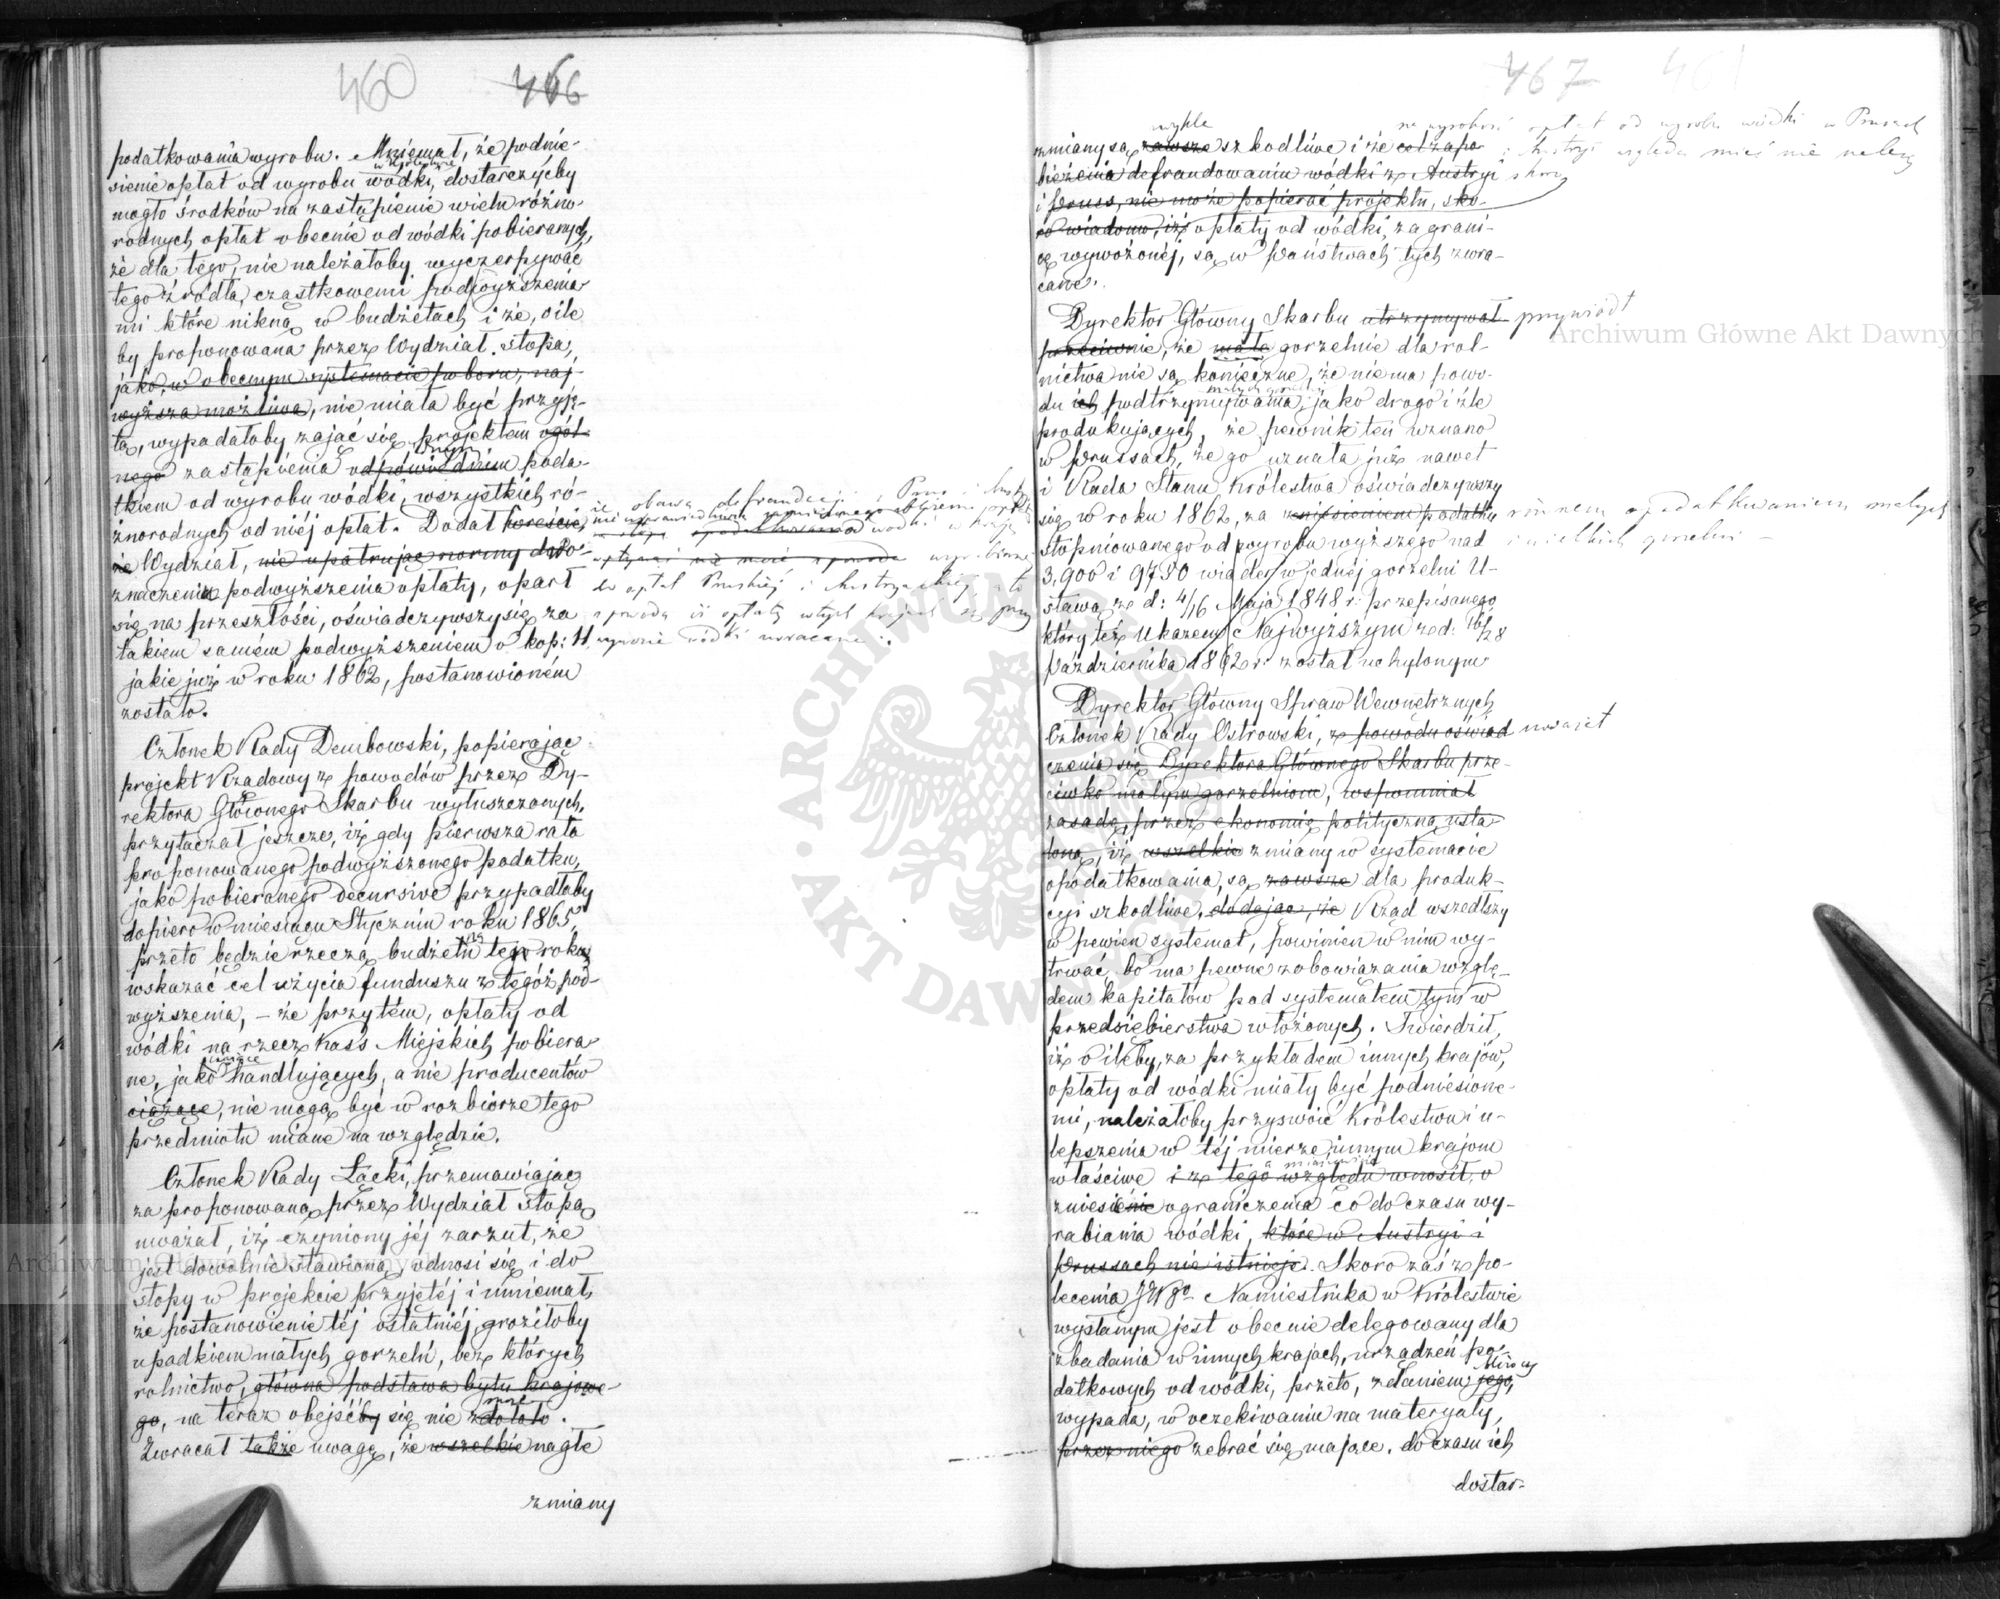 460 466
podatkowania wyrobu. Mniemał, że podnie-
sienie opłat od wyrobu wódki, dostarczyćby
mogło środków na zastąpienie wielu różno-
rodnych opłat obecnie od wódki pobieranych,
że dla tego, nie należałoby wyczerpywać
tego źródła, cząstkowemi podwyższenia-
mi które nikną w budżetach i że, oile
by proponowana przez Wydział stopa,
jako, w obecnym systemacie poboru, naj-
wyższa możliwa, nie miała być przyję-
tą, wypadałoby zająć się projektem ogól-
nego zastąpienia odpowiedniem poda-
tkiem od wyrobu wódki, wszystkich ró-
żnorodnych od niej opłat. Dodał wreście,
że Wydział, nie upatrując normy do o-
znaczenia podwyższenia opłaty, oparł
się na przeszłości, oświadczywszy się za
takiem samém podwyższeniem o kop: 11.
jakie już w roku 1862, postanowioném
zostało.
że obawa defraudacji z Pruss i Austryi
do opłat Pruskiéj i Austryackiéj, a to
z powodu iż opłaty w tych krajach są przy
wywozie wódki zwracane.
Członek Rady Dembowski, popierając
projekt Rządowy z powodów przez Dy-
rektora Głównego Skarbu wyłuszczonych,
przytaczał jeszcze, iż gdy pierwsza rata
proponowanego podwyższonego podatku,
jako pobieranego decursive przypadłaby
dopiero w miesiącu Styczniu roku 1865,
przeto będzie rzeczą budżetu na tego roku
wskazać cel użycia funduszu z tegóż pod-
wyższenia, – że przytém, opłaty od
wódki na rzecz Kass Miejskich pobiera-
ciążące
ne, jako handlujących, a nie producentów
ciążące, nie mogą być w rozbiorze tego
przedmiotu miane na względzie.
Członek Rady Łącki, przemawiając
za proponowaną przez Wydział stopą
uważał, iż czyniony jéj zarzut, że
jest dowolnie stawioną, odnosi się i do
stopy w projekcie przyjętéj i mniemał,
że postanowienie téj ostatniéj, groziłoby
upadkiem małych gorzelń, bez których
rolnictwo, główna podstawa bytu krajowe-
może
go, na teraz obejśćby się nie zdołało.
Zwracał także uwagę, że wszelkie nagłe
zmiany
467 461
zwykle
na wysokość opłat od wyrobu wódki w Prusach
zmiany są zawsze szkodliwe i że co do zapo-
i Austryi względu mieć nie należy
bieżenia defraudowaniu wódki z Austryi
skoro
i Pruss, nie może popierać projektu, sko-
ro wiadomo, iż opłaty od wódki, za grani-
cę wywożonéj, są w Państwach tych zwra-
cane.
Dyrektor Główny Skarbu utrzymywał przywiódł
przeciwnie, że małe gorzelnie dla rol-
nictwa nie są konieczne, że niema powo-
małych gorzelń
du ich podtrzymywania, jako drogo i źle
produkujących, że pewnik ten uznano
w Prussach, że go uznała już nawet
i Rada Stanu Królestwa oświadczywszy
się w roku 1862, za zniesieniem podatku równem opodatkowaniem małych
stopniowanego od wyrobu wyższego nad i wielkich gorzelni –
3,900 i 9750 wiader w jednéj gorzelni U-
stawą ze d: 4/16 Maja 1848 r: przepisanego,
który też Ukazem Najwyższym z d: 16/28
Października 1862 r: został uchylonym
Dyrektor Główny Spraw Wewnętrznych
Członek Rady Ostrowski, z powodu oświad- uważał
czenia się Dyrektora Głównego Skarbu prze-
ciwko małym gorzelniom, wspomniał
zasadę, przez ekonomię polityczną usta-
loną, iż wszelkie zmiany w systemacie
opodatkowania, są zawsze dla produk-
cyi szkodliwe, dodając, że Rząd wszedłszy
w pewien systemat, powinien w nim wy-
trwać, bo ma pewne zobowiązania wzglę-
dem kapitałów pod systematem tym w
przedsiębierstwa włożonych. Twierdził,
iż oileby, za przykładem innych krajów,
opłaty od wódki miały być podniesione-
mi, należałoby przyswoić Królestwu i u-
lepszenia w téj mierze innym krajom
a mianowicie
właściwe i z tego względu wnosił, o
zniesienie ograniczenia co do czasu wy-
rabiania wódki, które w Austryi i
Prussach nie istnieje. Skoro zaś z po-
lecenia JWgo Namiestnika w Królestwie
wysłanym jest obecnie delegowany dla
zbadania w innych krajach, urządzeń po-
datkowych od wódki, przeto, zdaniem jego,
Mówcy
wypada, w oczekiwaniu na materyały,
przez niego zebrać się mające, do czasu ich
dostar-
Archiwum Główne Akt Dawnych
ARCHIWUM GŁÓWNE AKT DAWNYCH
Archiwum Główne Akt Dawnych